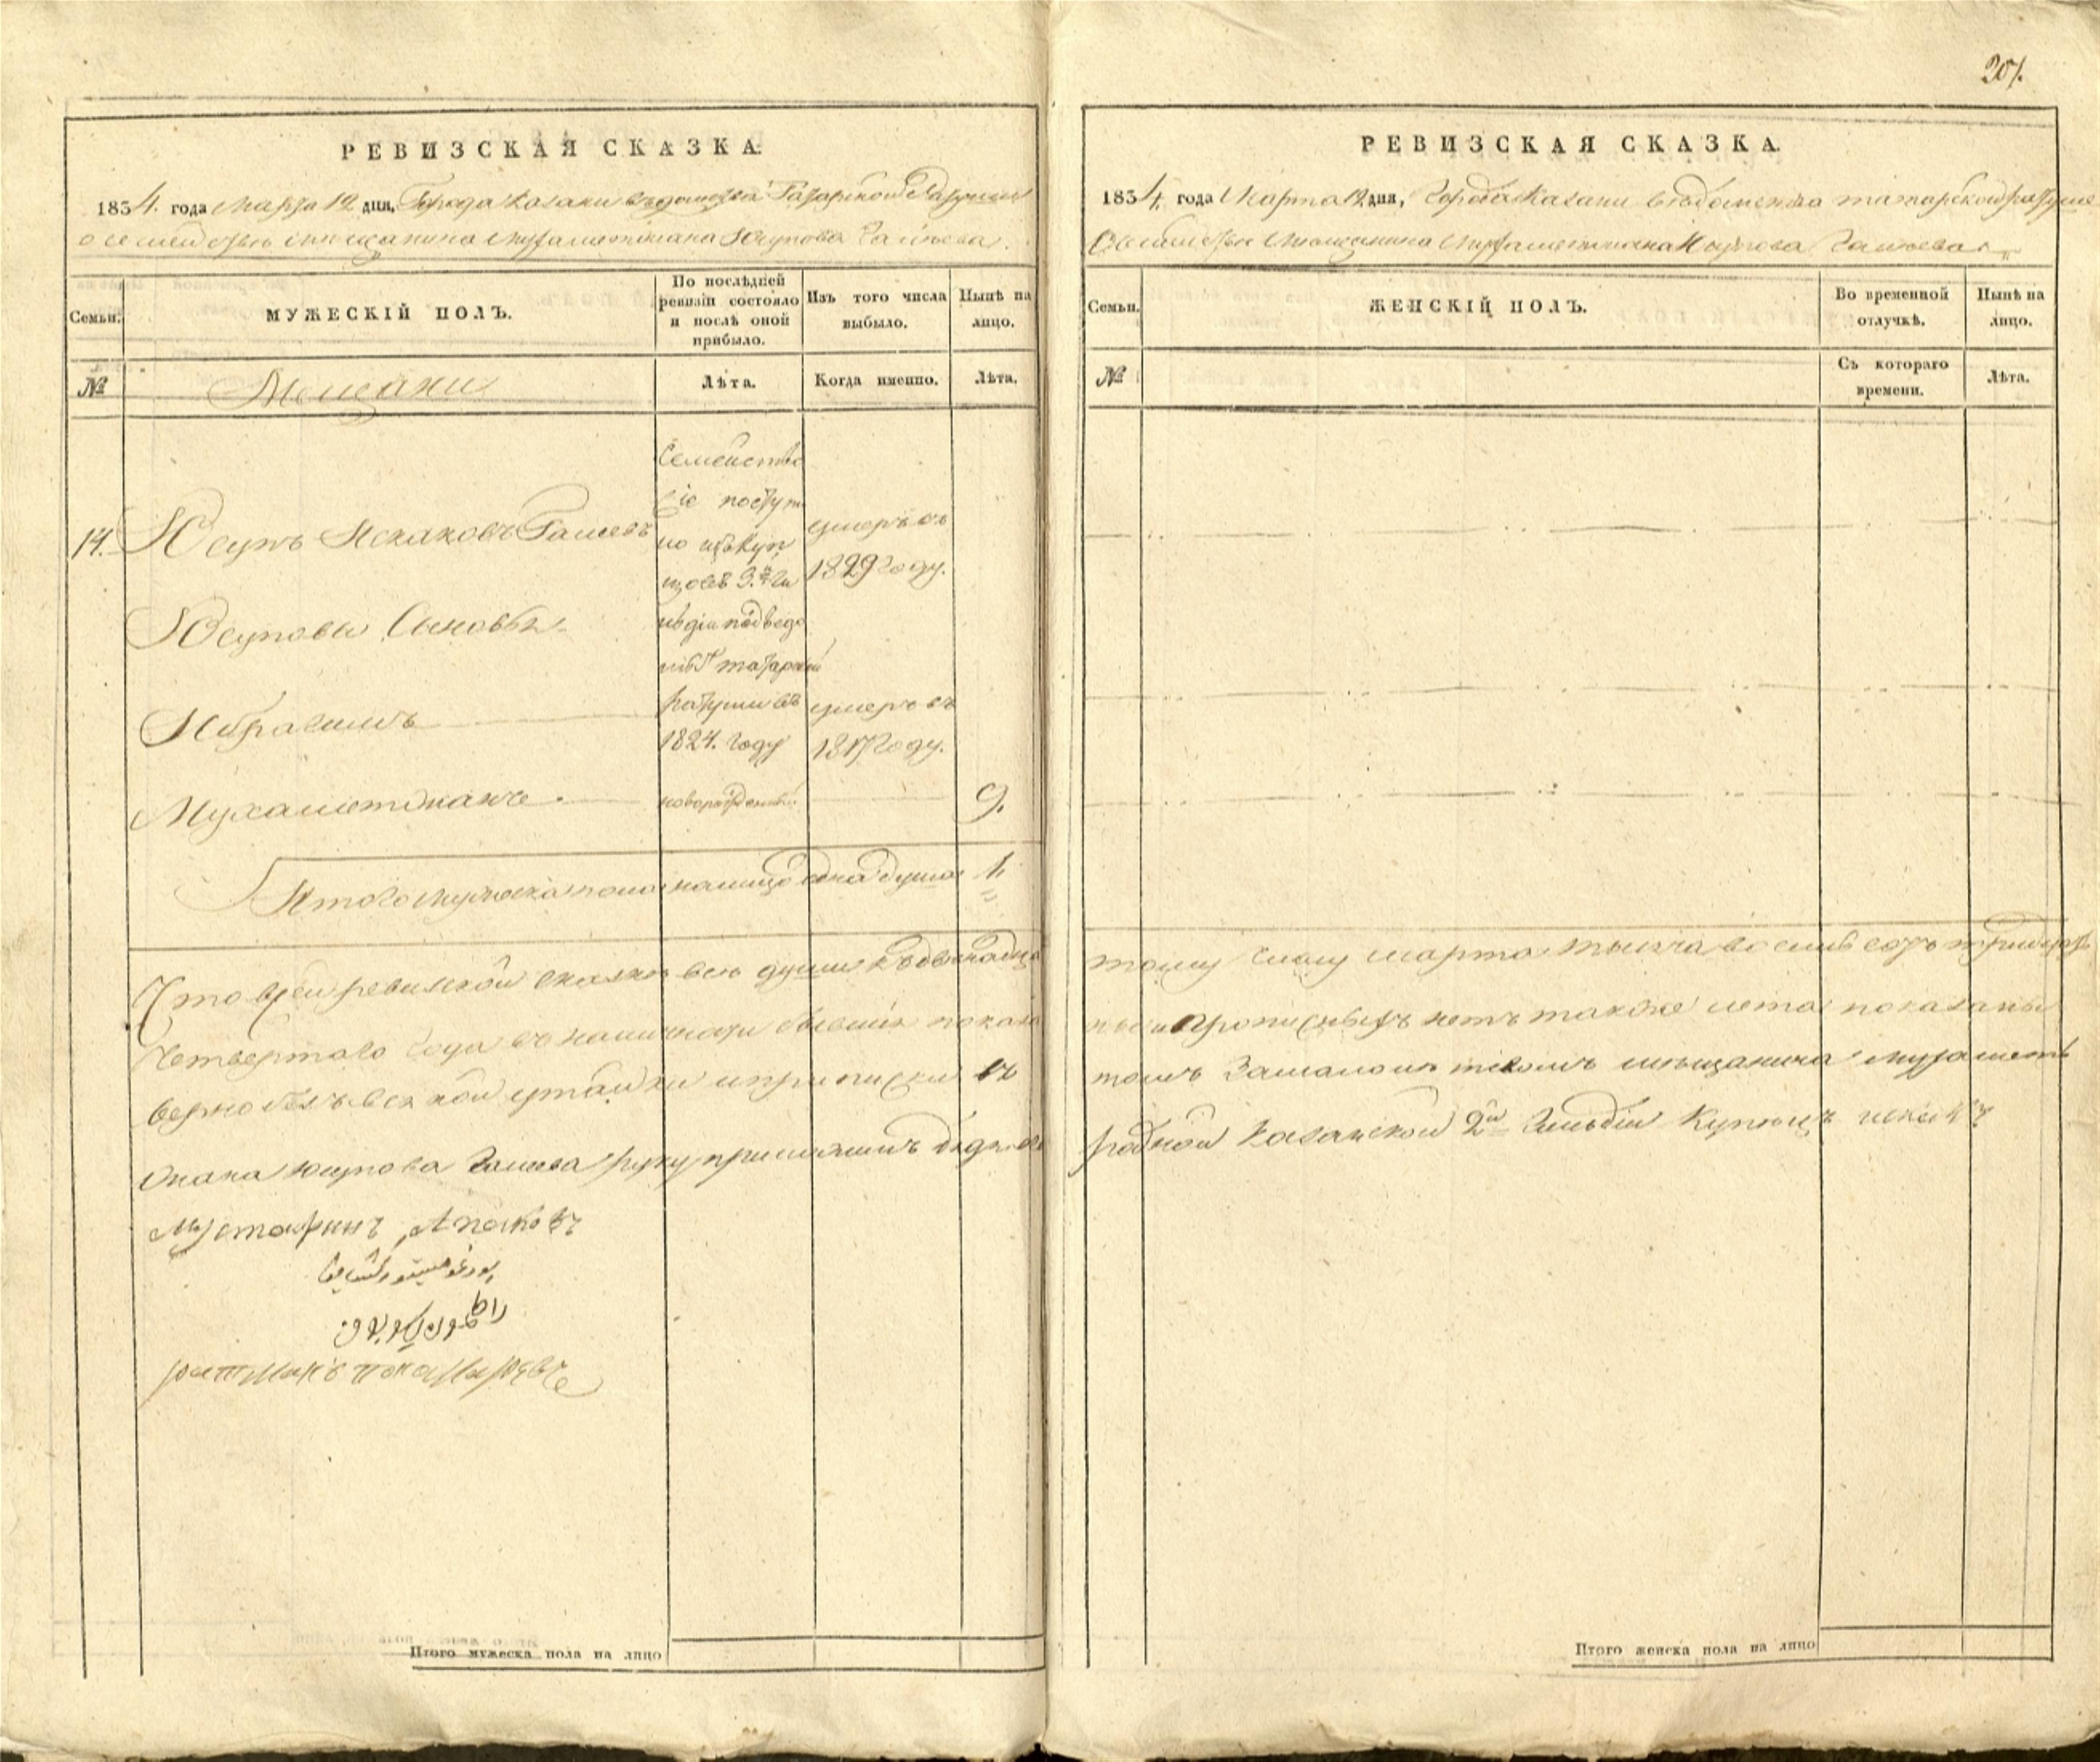 207.
РЕВИЗСКАЯ СКАЗКА.
1834. года Марта 12 дня, Города Казани ведомства Татарской Ратуши
о семействе мещанина Мухаметжана Юсупова Галеева.
Семьи.
МУЖЕСКІЙ ПОЛЪ.
По послѣдней ревизіи состояло и послѣ оной прибыло.
Изъ того числа выбыло.
Нынѣ на лицо.
№
Мещани
Лѣта.
Когда именно.
Лѣта.
14. Юсупъ Искаковъ Галеевъ
Семейство
сіе поступи
ло изъ Куп
цовъ 3.й Ги
льдіи подведо
татарской
Ратуши въ
1824. году
умеръ въ
1829 году.
Юсуповы Сыновья
Ибрагимъ
умеръ въ
1817 году.
Мухаметжанъ новорожденный 9.
Итого мужеска пола налицо одна душа 1.
Что в сей ревизской сказке все души къ двенадца
Четвертаго года въ наличности бывшія показа
верно безъ всякой утайки и приписки въ
жана Юсупова Галеева руку приложилъ
Мустафинъ Апаковъ
РЕВИЗСКАЯ СКАЗКА.
1834. года Марта 12 дня, Города Казани ведомства татарской ратуши
О семействе Мещанина Мухаметжана Юсупова Галеева
Семьи.
ЖЕНСКІЙ ПОЛЪ.
Во временной отлучкѣ.
Нынѣ на лицо.
№
Съ котораго времени.
Лѣта.
тому числу марта тысяча восемь сотъ тридцать
прописныхъ нетъ также лета показаны
томъ За малолетствомъ мещанина Мухаметъ
родной Казанской 2й Гильдіи Купецъ
Итого мужеска пола на лицо
Итого женска пола на лицо